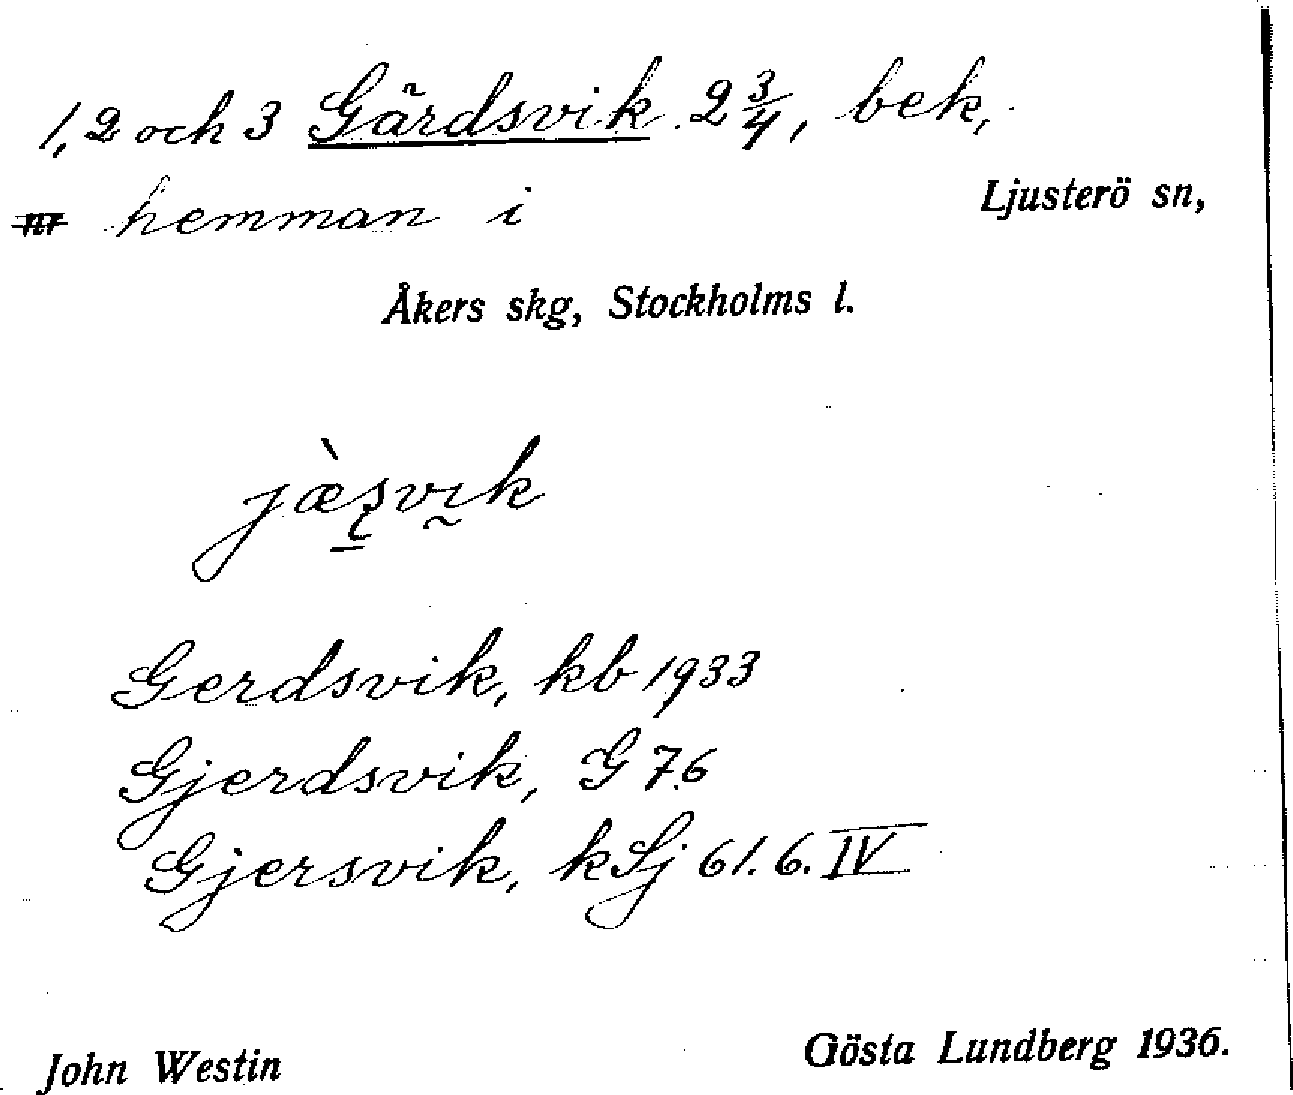 1, 2 och 3 Gärdsvik 2 3/4, bek,
hemman i Ljusterö sn,
Åkers skg, Stockholms l.
jæ̀s̨vik
Gerdsvik, kb 1933
Gjerdsvik, G 76
Gjersvik, kSj 61.6.IV
John Westin Gösta Lundberg 1936.